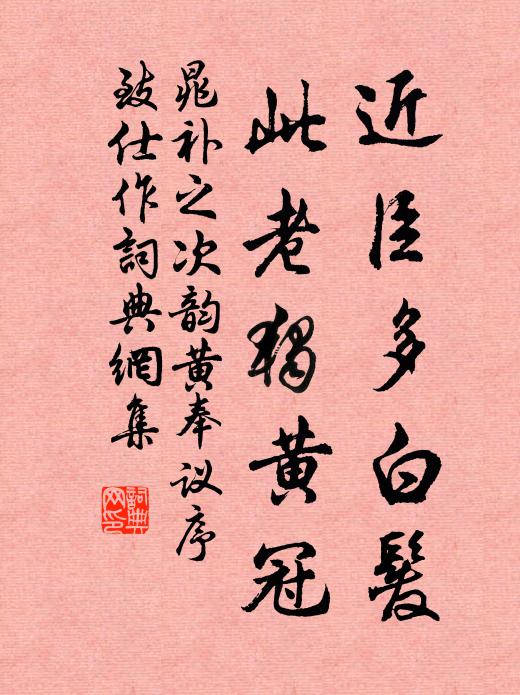 近臣多白髮
此老獨黄冠
晁补之次韵黄奉议序
致仕作詞典網集
詞典网印